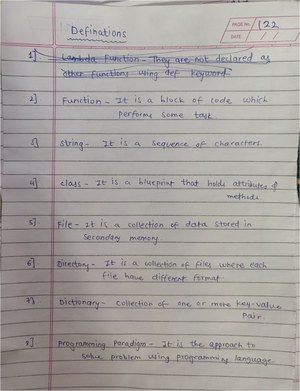 Definations
PAGE No. 122
DATE / /
1] Lambda Function - They are not declared as
other functions using def keyword
2]. Function - It is a block of code which
performs some task.
3] String - It is a sequence of characters.
4] class - It is a blueprint that holds attributes &
methods.
5]. File - It is a collection of data stored in
secondary memory
6]. Directory - It is a collection of files where each
file have different format.
7) Dictionary - Collection of one or more key-value
pair.
8] Programming Paradigm - It is the approach to
solve problem using programming language.